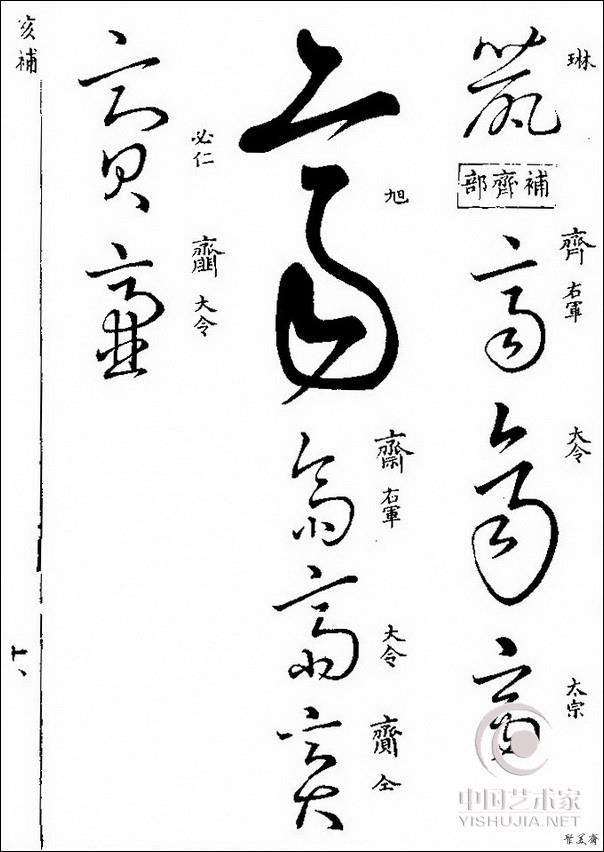 琳
補齊部
齊 右軍 齊
大令 齊
太宗 齊
旭 齊
齋 右軍 齋
大令 齋
齎 仝 齎
必仁 齎
齏 大令 齏
亥補
中国艺术家
YISHUJIA.NET